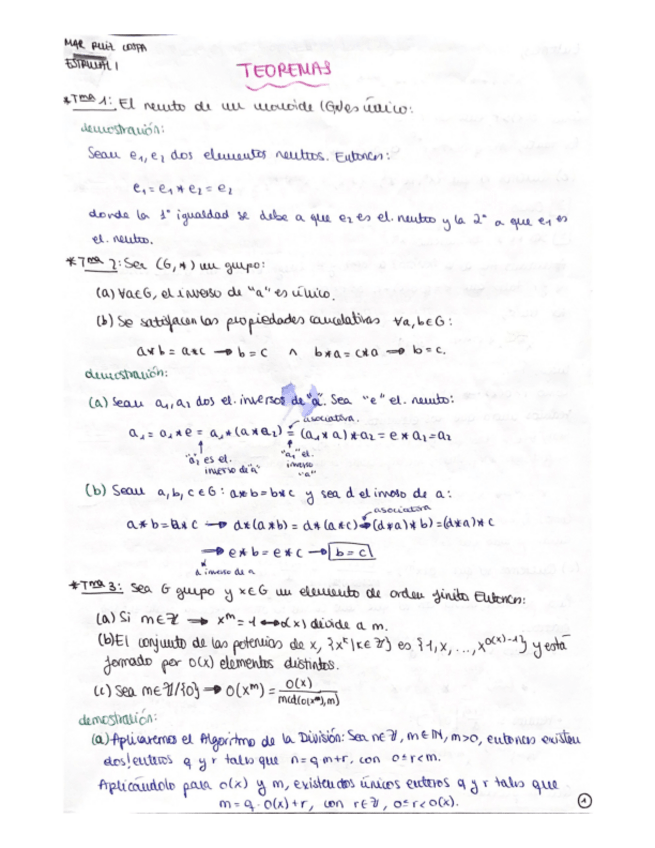 MAR RUIZ
ESTRUCAL 1
TEOREMAS
*Tma 1: El neutro de un monoide (G,*) es único:
demostración:
Sean e₁, e₂ dos elementos neutros. Entonces:
e₁ = e₁ * e₂ = e₂
donde la 1ª igualdad se debe a que e₂ es el neutro y la 2ª a que e₁ es
el neutro.
*Tma 2: Sea (G,*) un grupo:
(a) ∀a∈G, el inverso de "a" es único.
(b) Se satisfacen las propiedades cancelativas ∀a,b∈G:
a*b = a*c → b=c ∧ b*a = c*a → b=c.
demostración:
(a) Sean a₁, a₂ dos el. inversos de "a". Sea "e" el neutro:
asociativa.
a₁ = a₁*e = a₁*(a*a₂) = (a₁*a)*a₂ = e*a₂ = a₂
"a₂" es el inverso de "a"
"a₁" el inverso "a"
(b) Sean a,b,c∈G: a*b=b*c y sea d el inverso de a:
asociativa
a*b=a*c → d*(a*b) = d*(a*c) → (d*a)*b) = (d*a)*c
→ e*b = e*c → b=c
d inverso de a
*Tma 3: Sea G grupo y x∈G un elemento de orden finito. Entonces:
(a) Si m∈ℤ → x^m = 1 ↔ o(x) divide a m.
(b) El conjunto de las potencias de x, {x^k | k∈ℤ} es {1, x, ..., x^(o(x)-1)} y está
formado por o(x) elementos distintos.
(c) Sea m∈ℤ/{0} → o(x^m) = o(x) / mcd(o(x^m), m)
demostración:
(a) Aplicaremos el Algoritmo de la División: Sea n∈ℤ, m∈ℕ, m>0, entonces existen
dos! enteros q y r tales que n = q m + r, con 0≤r<m.
Aplicándolo para o(x) y m, existen dos únicos enteros q y r tales que
m = q · o(x) + r, con r∈ℤ, 0≤r<o(x).
1